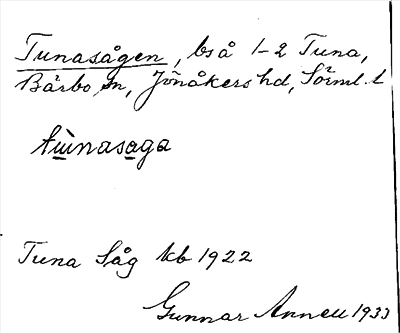 Tunasågen, bså 1-2 Tuna,
Bärbo sn, Jönåkers hd, Sörml. l
tùnasaga
Tuna Såg kb 1922
Gunnar Annell 1933